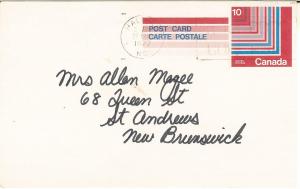 10
POST CARD
CARTE POSTALE
Canada
Mrs Allen Magee
68 Queen St
St Andrews
New Brunswick